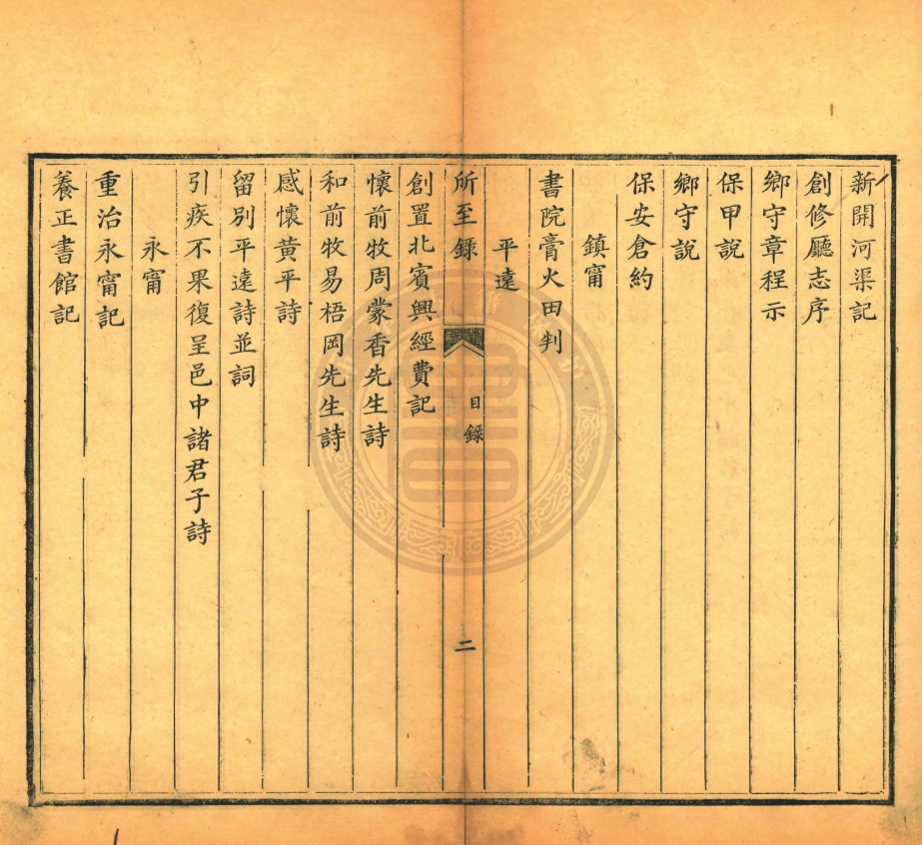 新開河渠記
創修廳志序
鄉守章程示
保甲說
鄉守說
保安倉約
鎮甯
書院膏火田判
平遠
所至錄
目錄
二
創置北賓興經費記
懷前牧周蒙香先生詩
和前牧易梧岡先生詩
感懷黃平詩
留別平遠詩並詞
引疾不果復呈邑中諸君子詩
永甯
重治永甯記
養正書館記